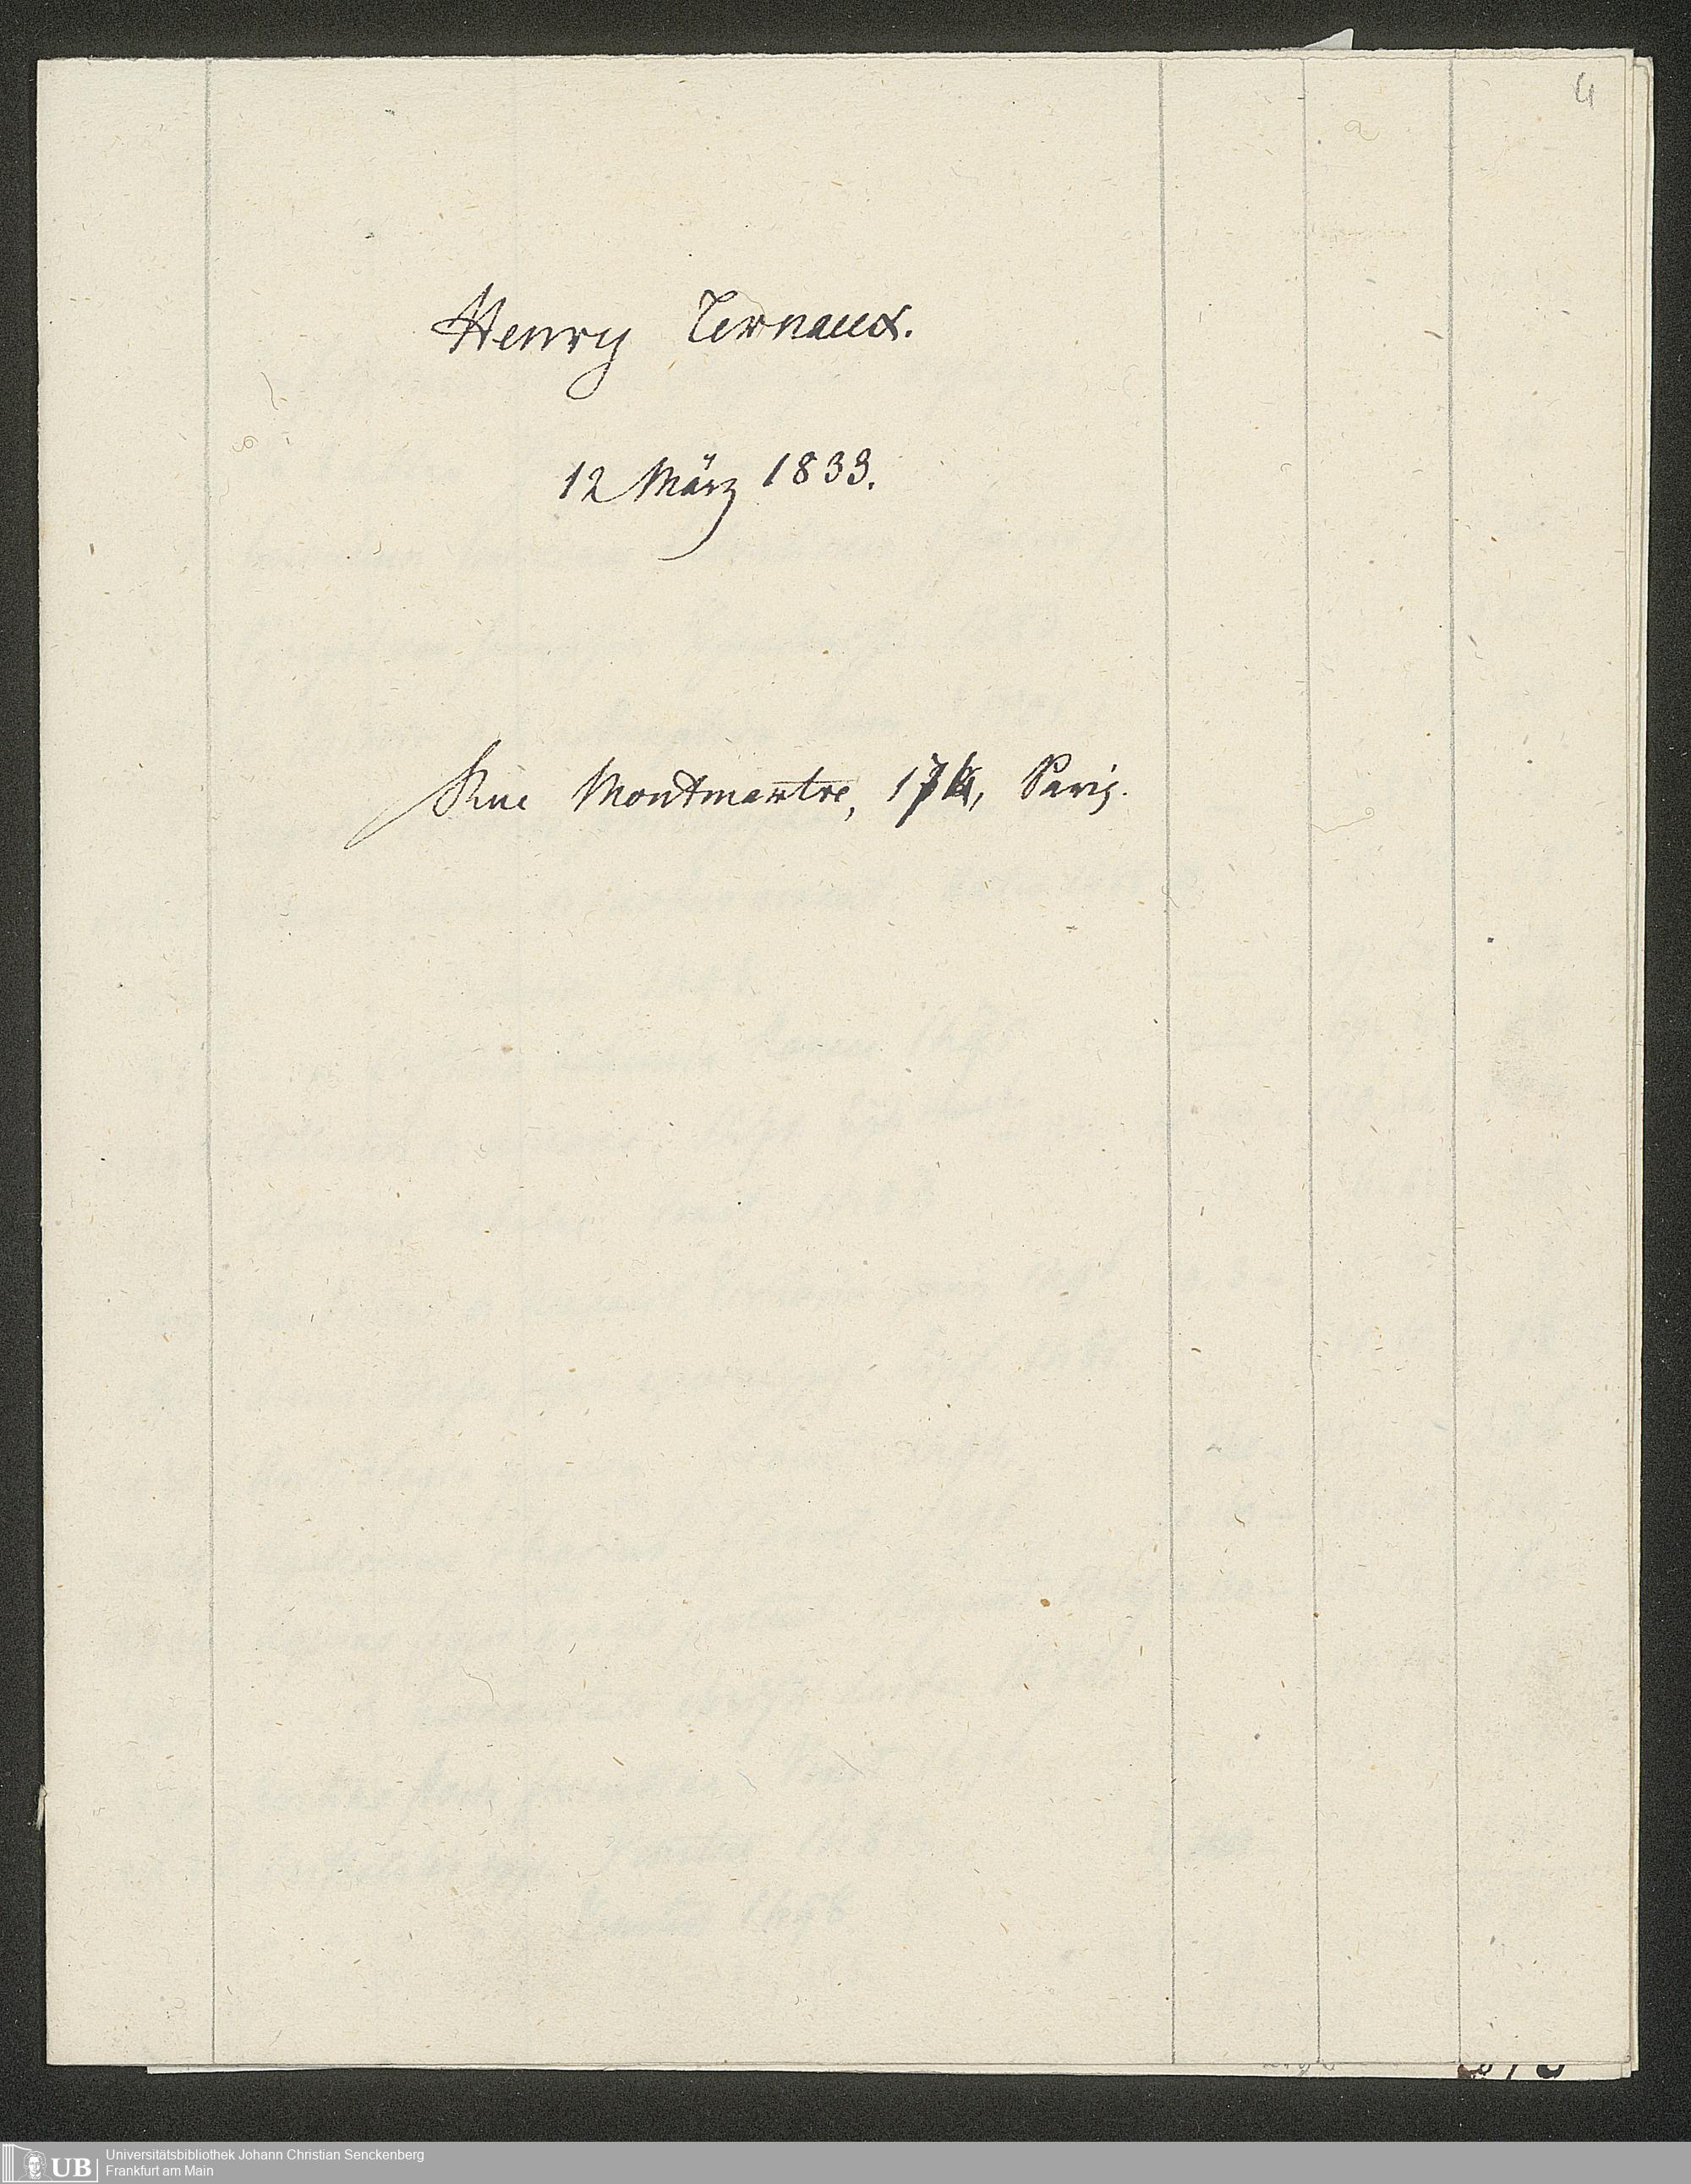 4
Henry Ternaux.
12 März 1833.
Rue Montmartre, Paris.
UB Universitätsbibliothek Johann Christian Senckenberg
Frankfurt am Main